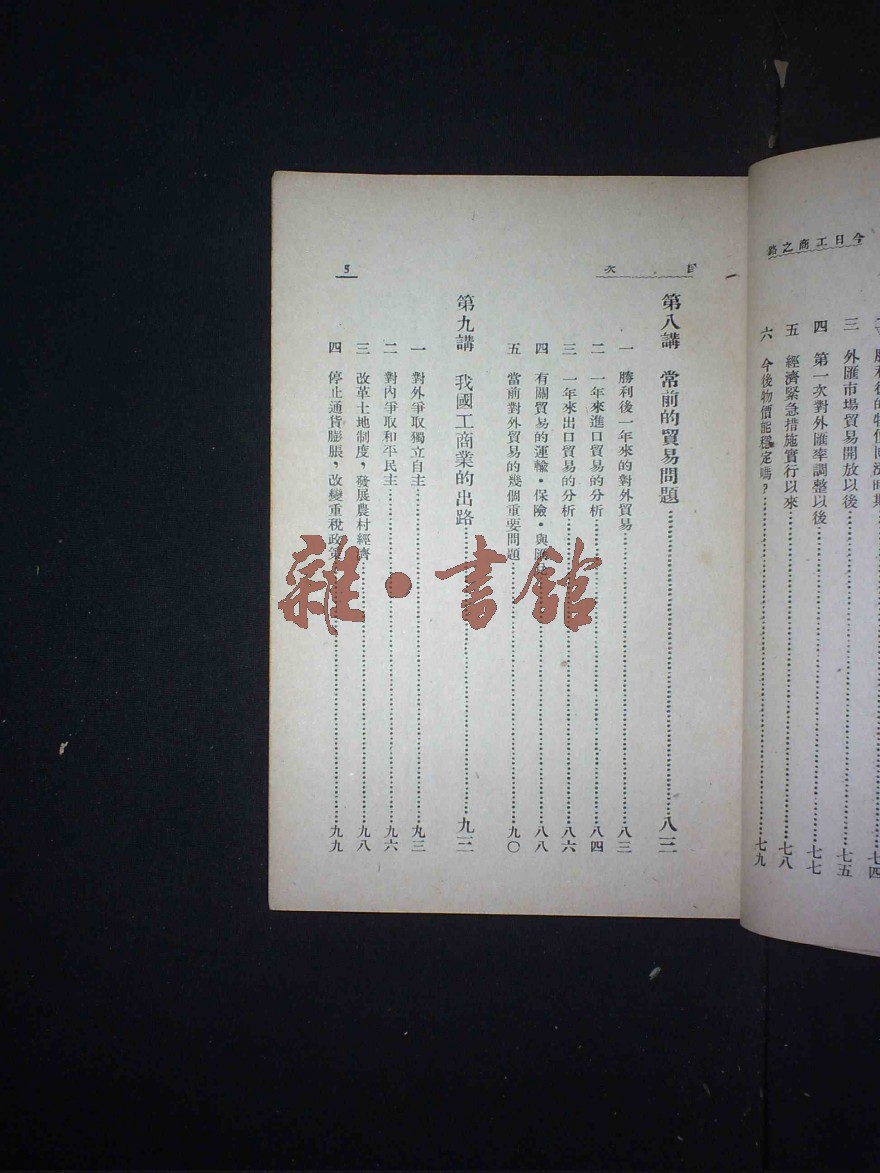 今日工商之路
三 外匯市場貿易開放以後……七五
四 第一次對外匯率調整以後……七七
五 經濟緊急措施實行以來……七八
六 今後物價能穩定嗎?……七九
目次
第八講 常前的貿易問題……八三
一 勝利後一年來的對外貿易……八三
二 一年來進口貿易的分析……八四
三 一年來出口貿易的分析……八六
四 有關貿易的運輸・保險・與匯……八八
五 當前對外貿易的幾個重要問題……九〇
第九講 我國工商業的出路……九三
一 對外爭取獨立自主……九三
二 對內爭取和平民主……九六
三 改革土地制度,發展農村經濟……九八
四 停止通貨膨脹,改變重稅政策……九九
5
雜・書館